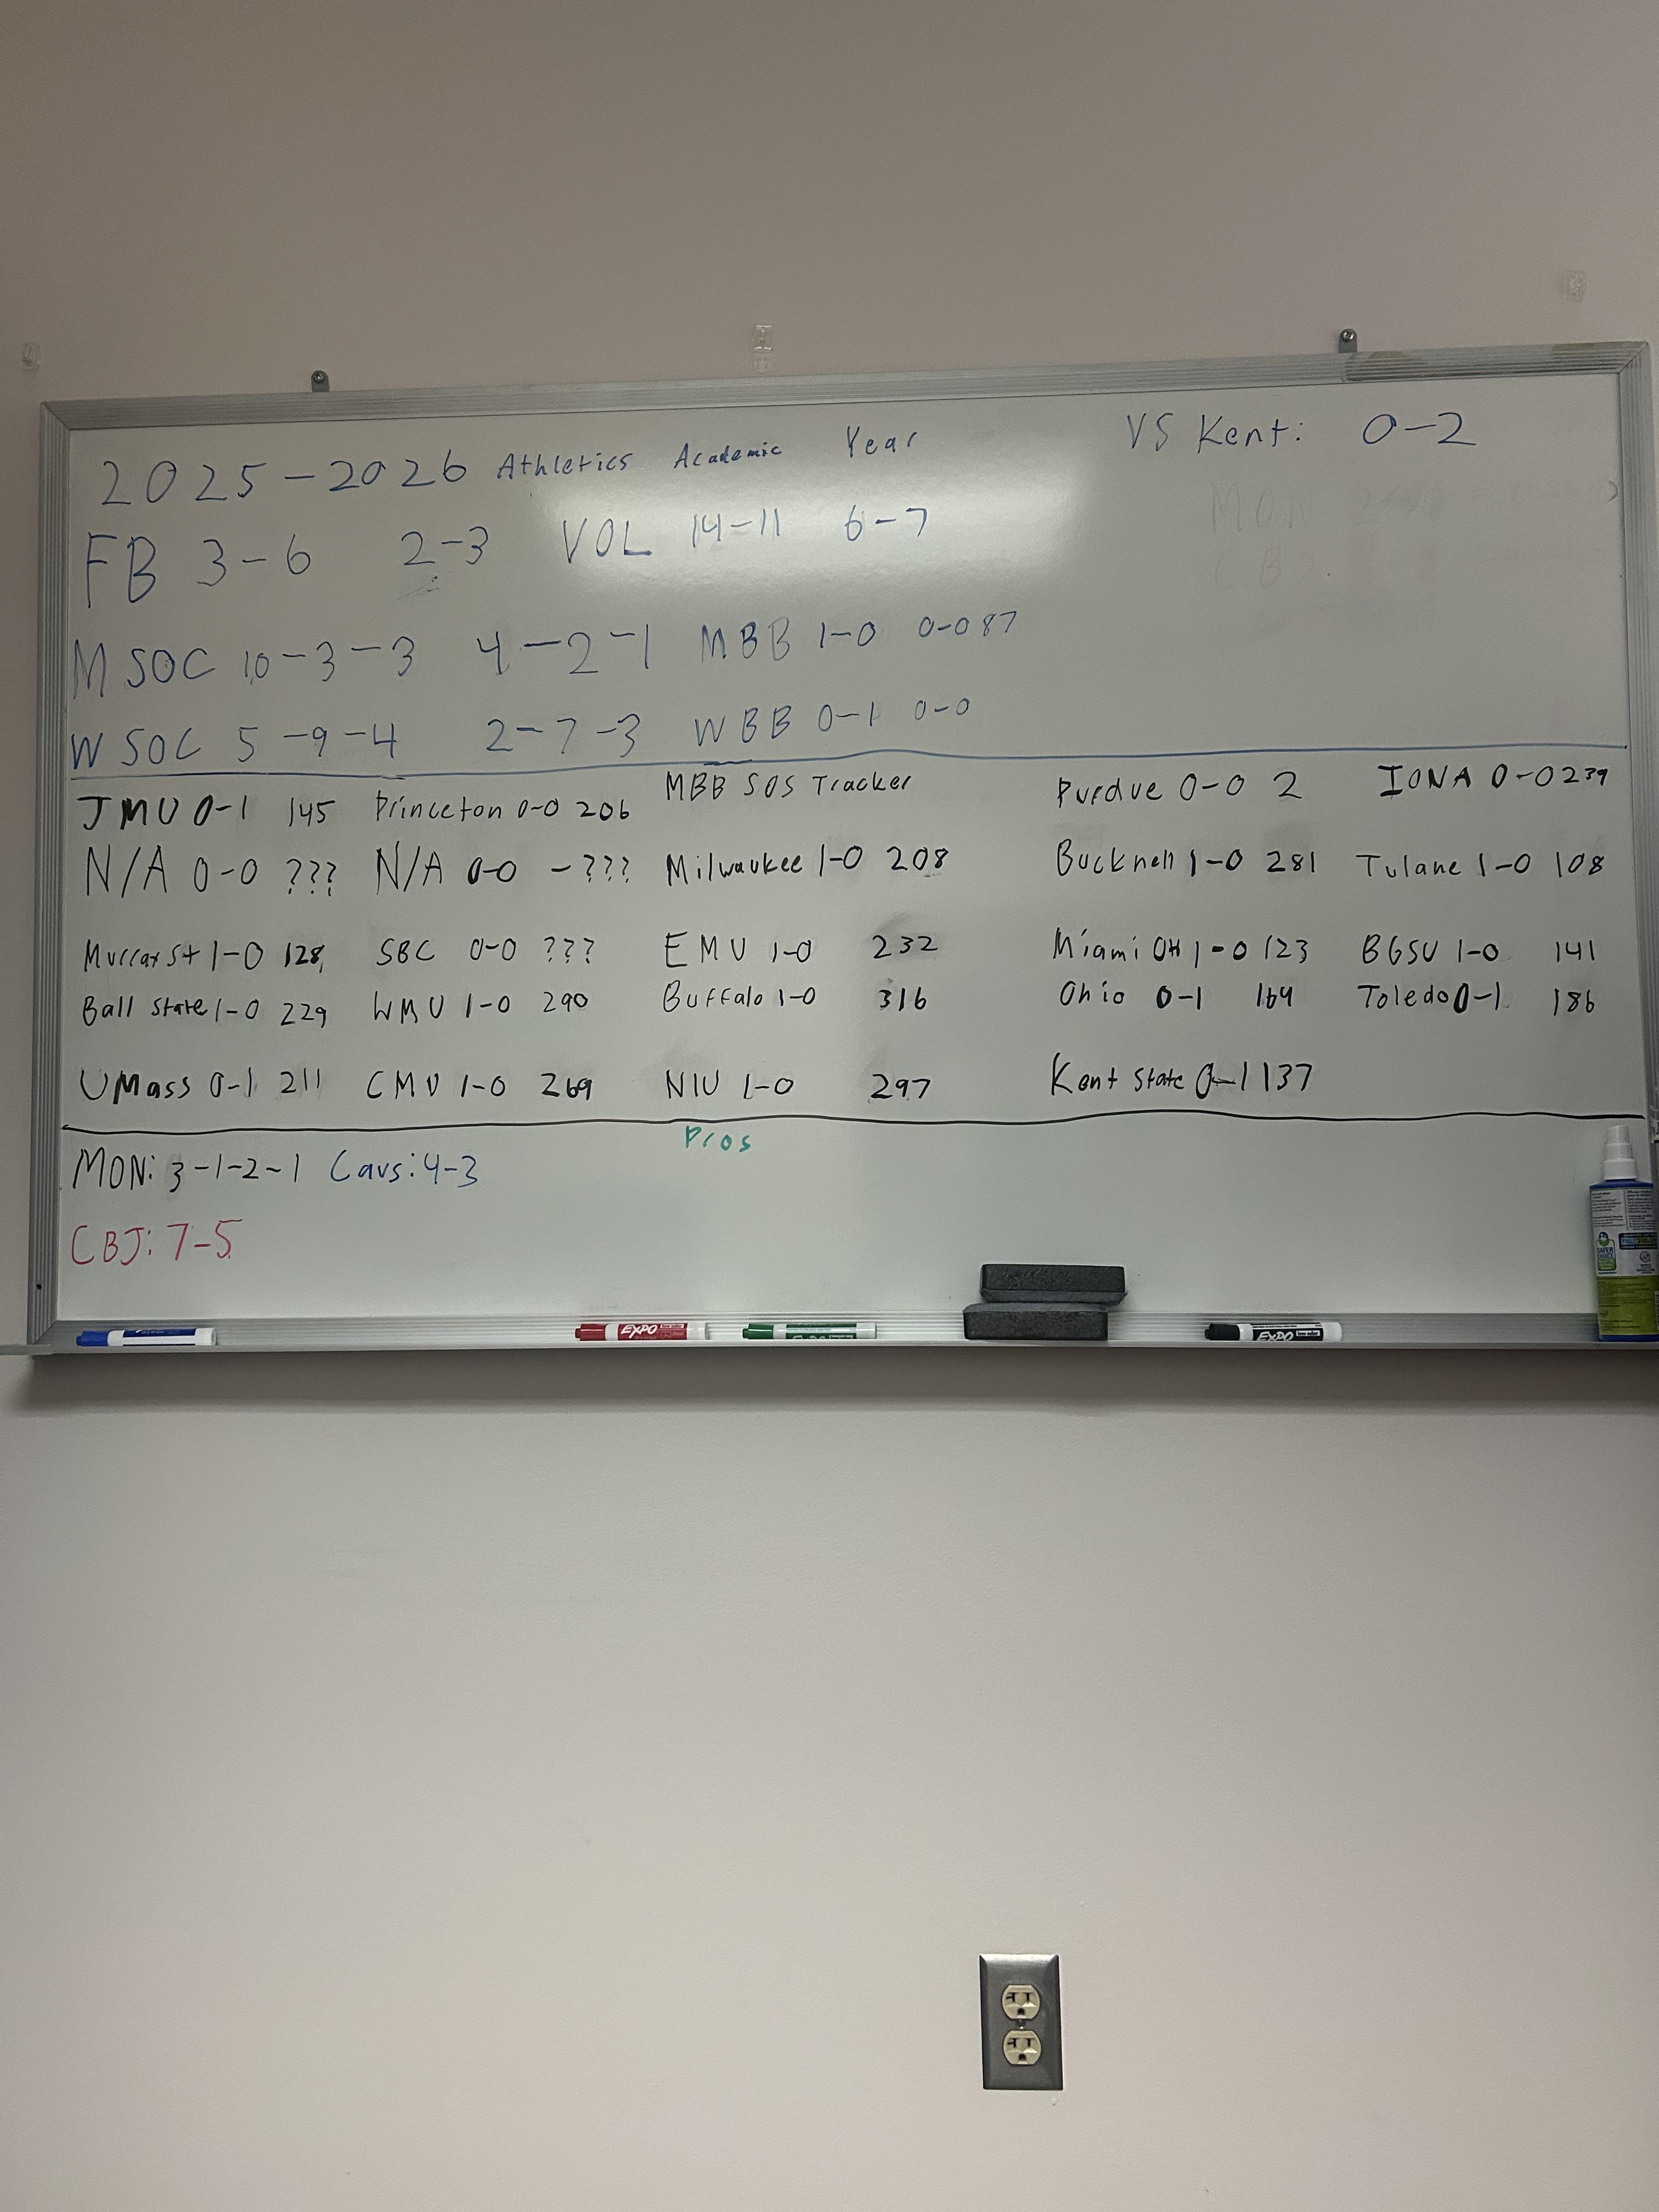 2025-2026 Athletics Academic Year VS Kent: 0-2
FB 3-6 2-3 VOL 14-11 6-7
M SOC 10-3-3 4-2-1 MBB 1-0 0-0 87
W SOC 5-9-4 2-7-3 WBB 0-1 0-0
MBB SOS Tracker
JMU 0-1 145 Princeton 0-0 206 Purdue 0-0 2 IONA 0-0 239
N/A 0-0 ??? N/A 0-0 -??? Milwaukee 1-0 208 Bucknell 1-0 281 Tulane 1-0 108
Murray St 1-0 128 SBC 0-0 ??? EMU 1-0 232 Miami OH 1-0 123 BGSU 1-0 141
Ball State 1-0 229 WMU 1-0 290 Buffalo 1-0 316 Ohio 0-1 164 Toledo 0-1 186
UMass 0-1 211 CMU 1-0 269 NIU 1-0 297 Kent State 0-1 137
Pros
MON: 3-1-2-1 Cavs: 4-3
CBJ: 7-5
EXPO
EXPO